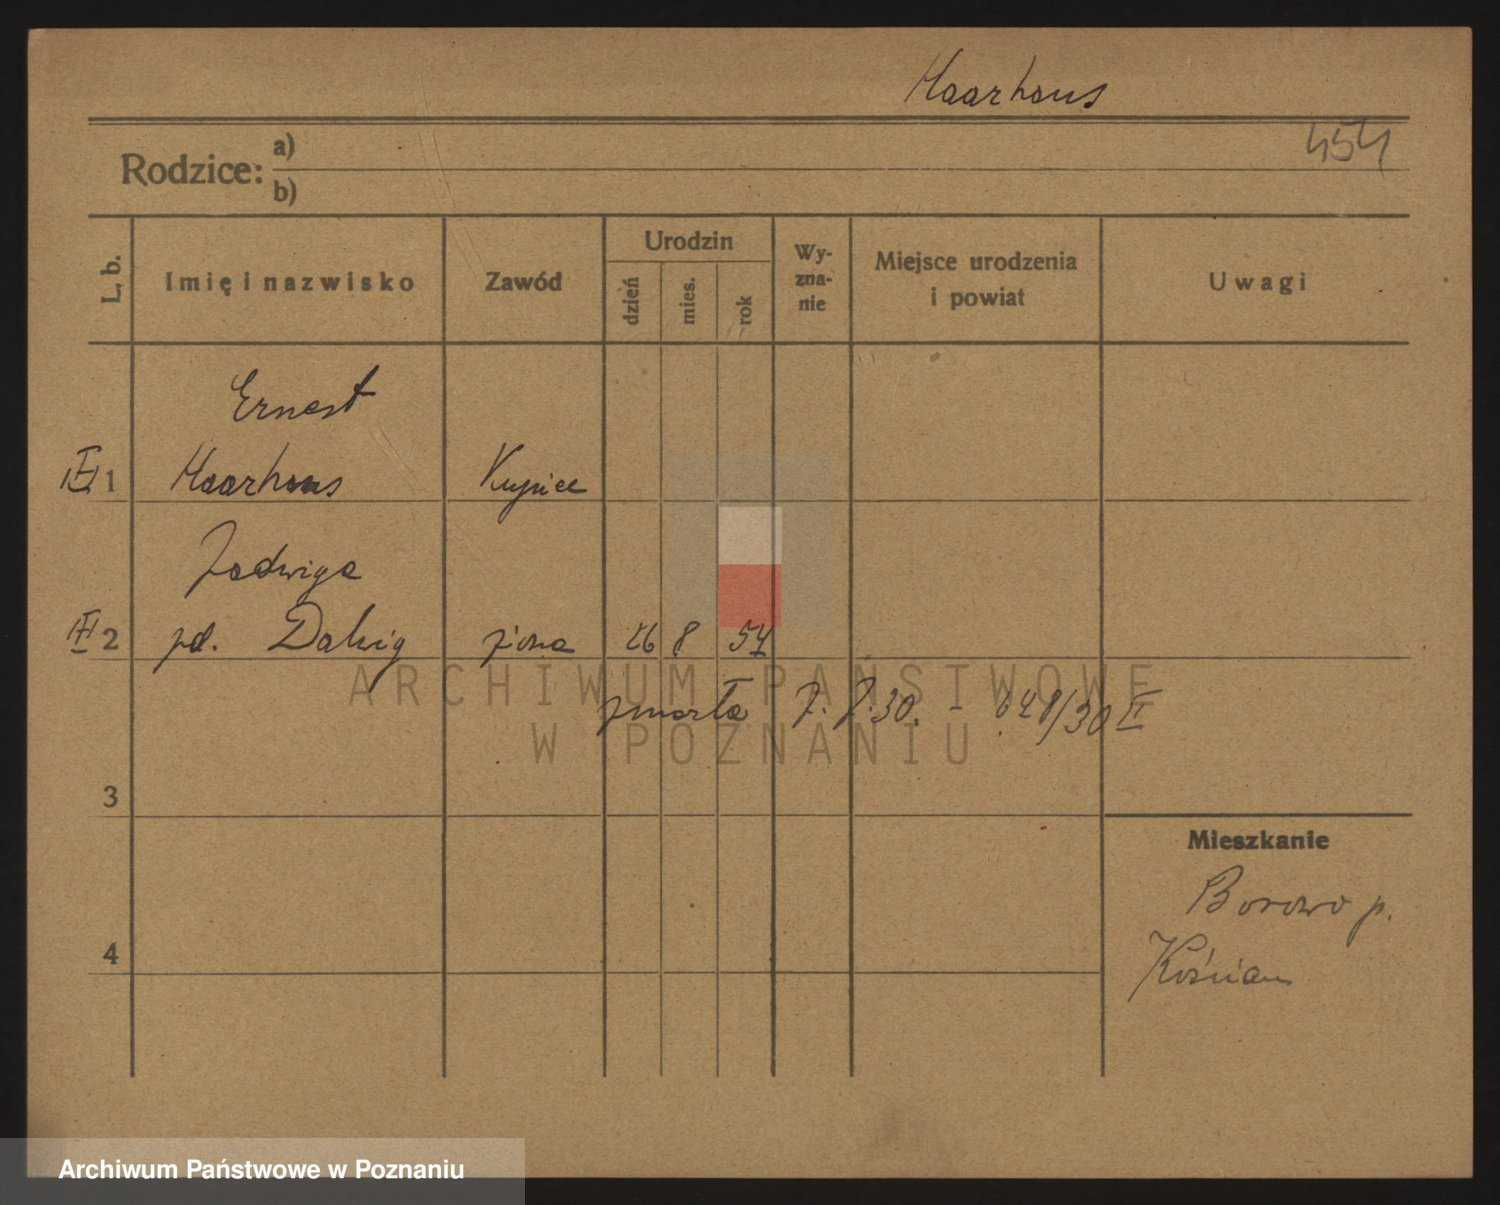 Haarhaus
454
Rodzice: a)
b)
L. b.
Imię i nazwisko
Zawód
Urodzin
dzień
mies.
rok
Wy-
zna-
nie
Miejsce urodzenia
i powiat
Uwagi
Ernest
1 Haarhaus Kupiec
Jadwiga
2 pd. Dalwig żona 26 8 54
zmarła 7. 7. 30. - 648/30 II
3
Mieszkanie
Borowo p.
4
Kościan
ARCHIWUM PAŃSTWOWE
W POZNANIU
Archiwum Państwowe w Poznaniu